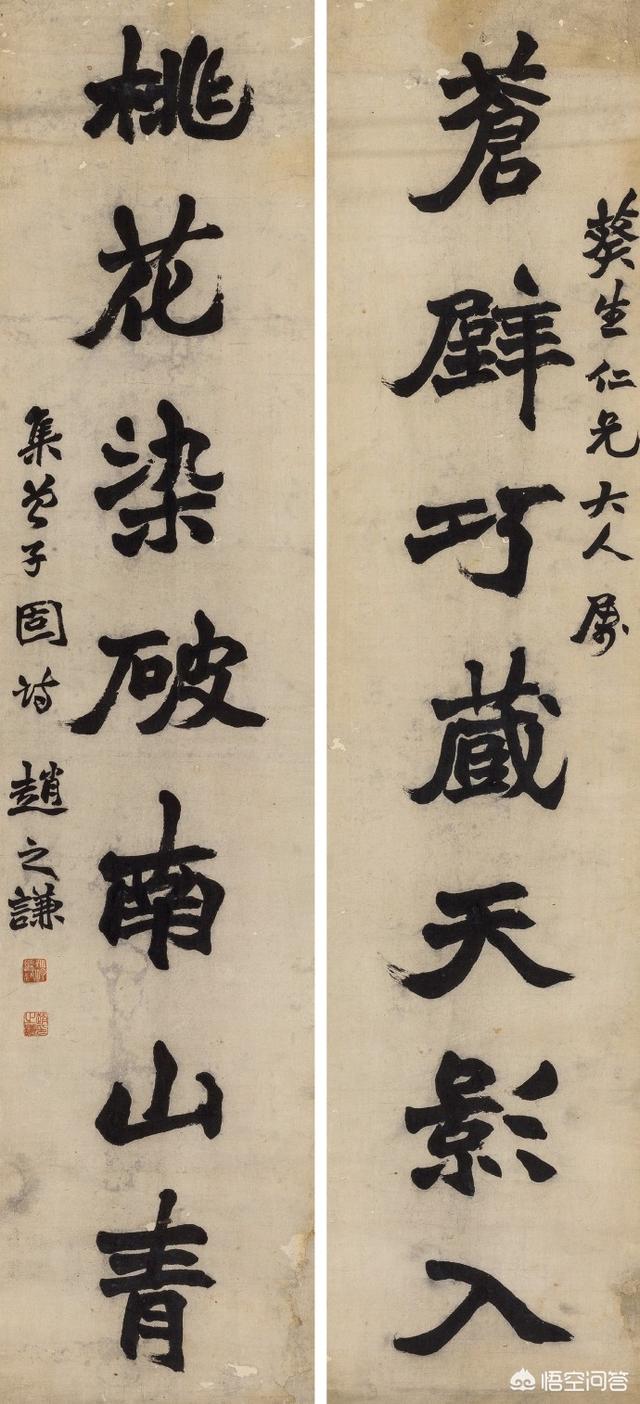 葵生仁兄大人属
蒼壁巧藏天影入
桃花染破南山青
集曾子固詩 趙之謙
悟空问答